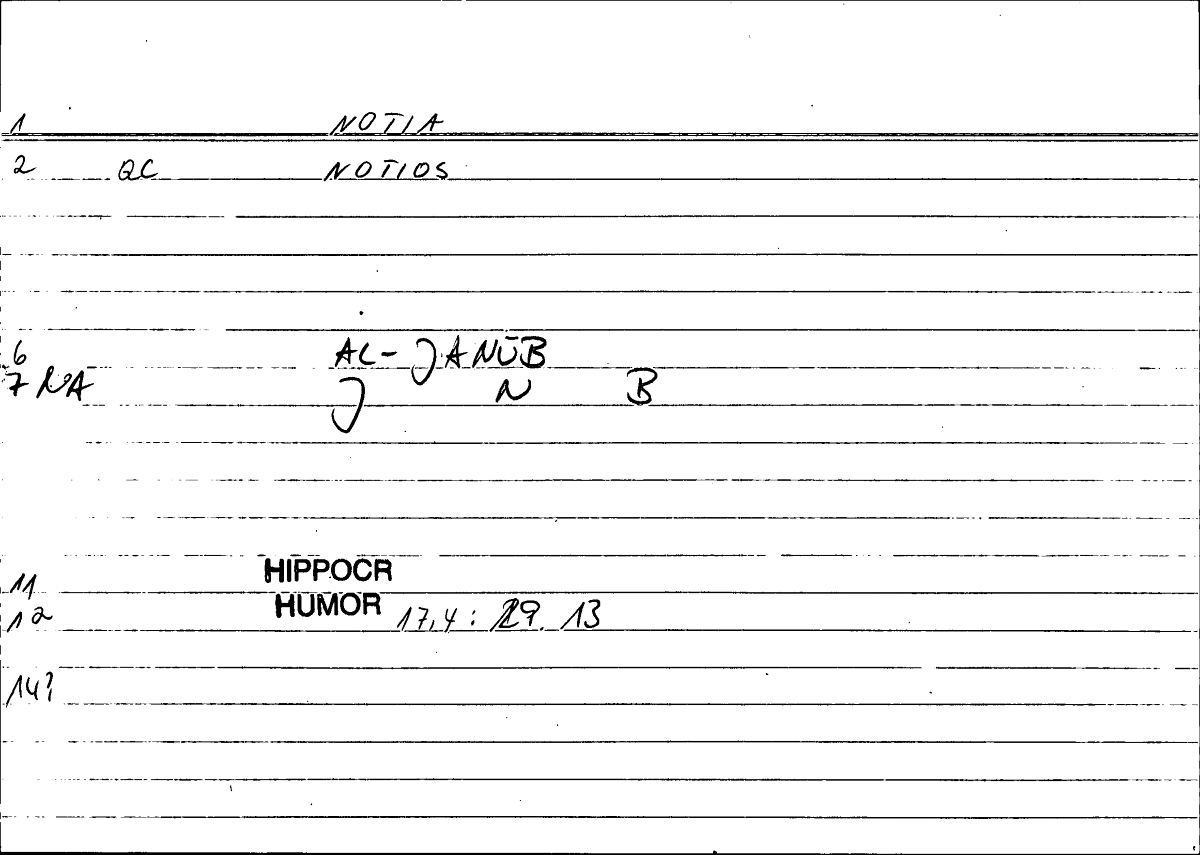 1 NOTIA
2 QC NOTIOS
6 AL-JANŪB
7 NA J N B
11 HIPPOCR
12 HUMOR 17,4: 13
14?